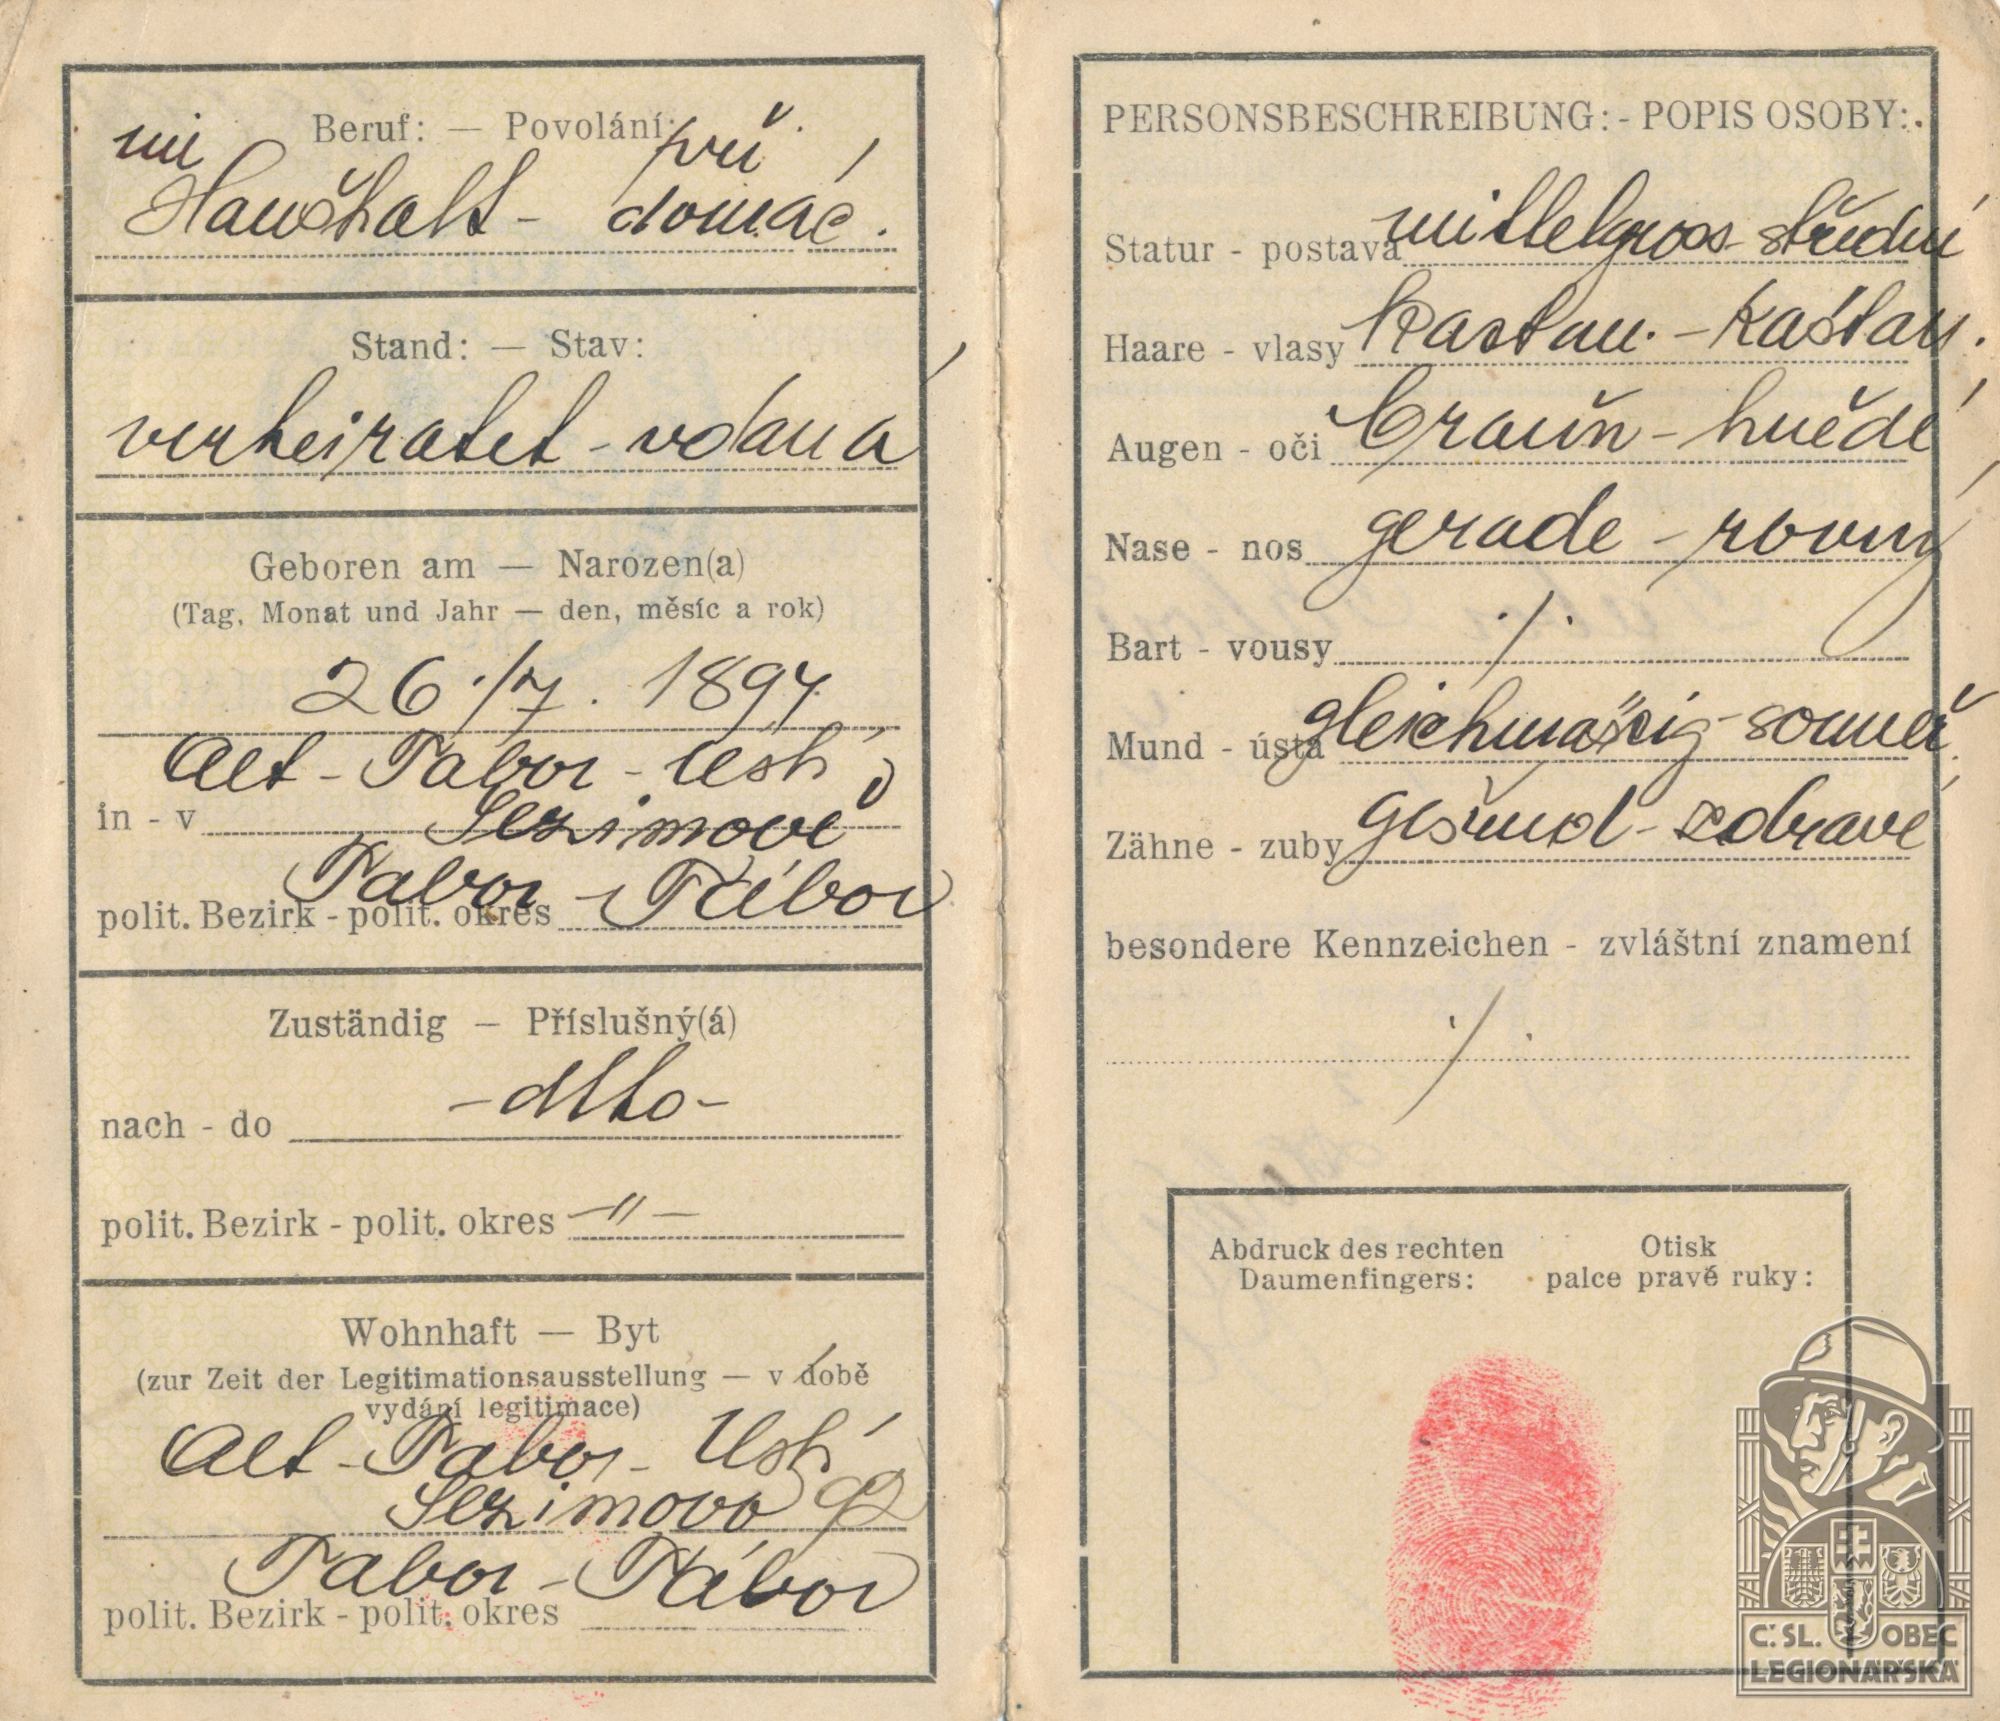 Beruf: — Povolání:
im při
Haušhalt - domác.
Stand: — Stav:
verheiratet - vdaná
Geboren am — Narozen(a)
(Tag, Monat und Jahr — den, měsíc a rok)
26./7. 1894
Alt - Tabor - Ústí
in - v Sezimově
Tabor - Tábor
polit. Bezirk - polit. okres
Zuständig — Příslušný(á)
nach - do - dtto -
polit. Bezirk - polit. okres - " -
Wohnhaft — Byt
(zur Zeit der Legitimationsausstellung — v době
vydání legitimace)
Alt - Tabor - Ústí
Sezimovo 92
Tabor - Tábor
polit. Bezirk - polit. okres
PERSONSBESCHREIBUNG: - POPIS OSOBY:
Statur - postava mittelgros - střední
Haare - vlasy Kastan. - Kaštan.
Augen - oči braun - hnědé
Nase - nos gerade - rovný
Bart - vousy ./.
Mund - ústa gleichmäszig - souměř.
Zähne - zuby gesund - zdravé
besondere Kennzeichen - zvláštní znamení
./.
Abdruck des rechten Daumenfingers:
Otisk palce pravé ruky:
Č. SL. OBEC
LEGIONÁŘSKÁ